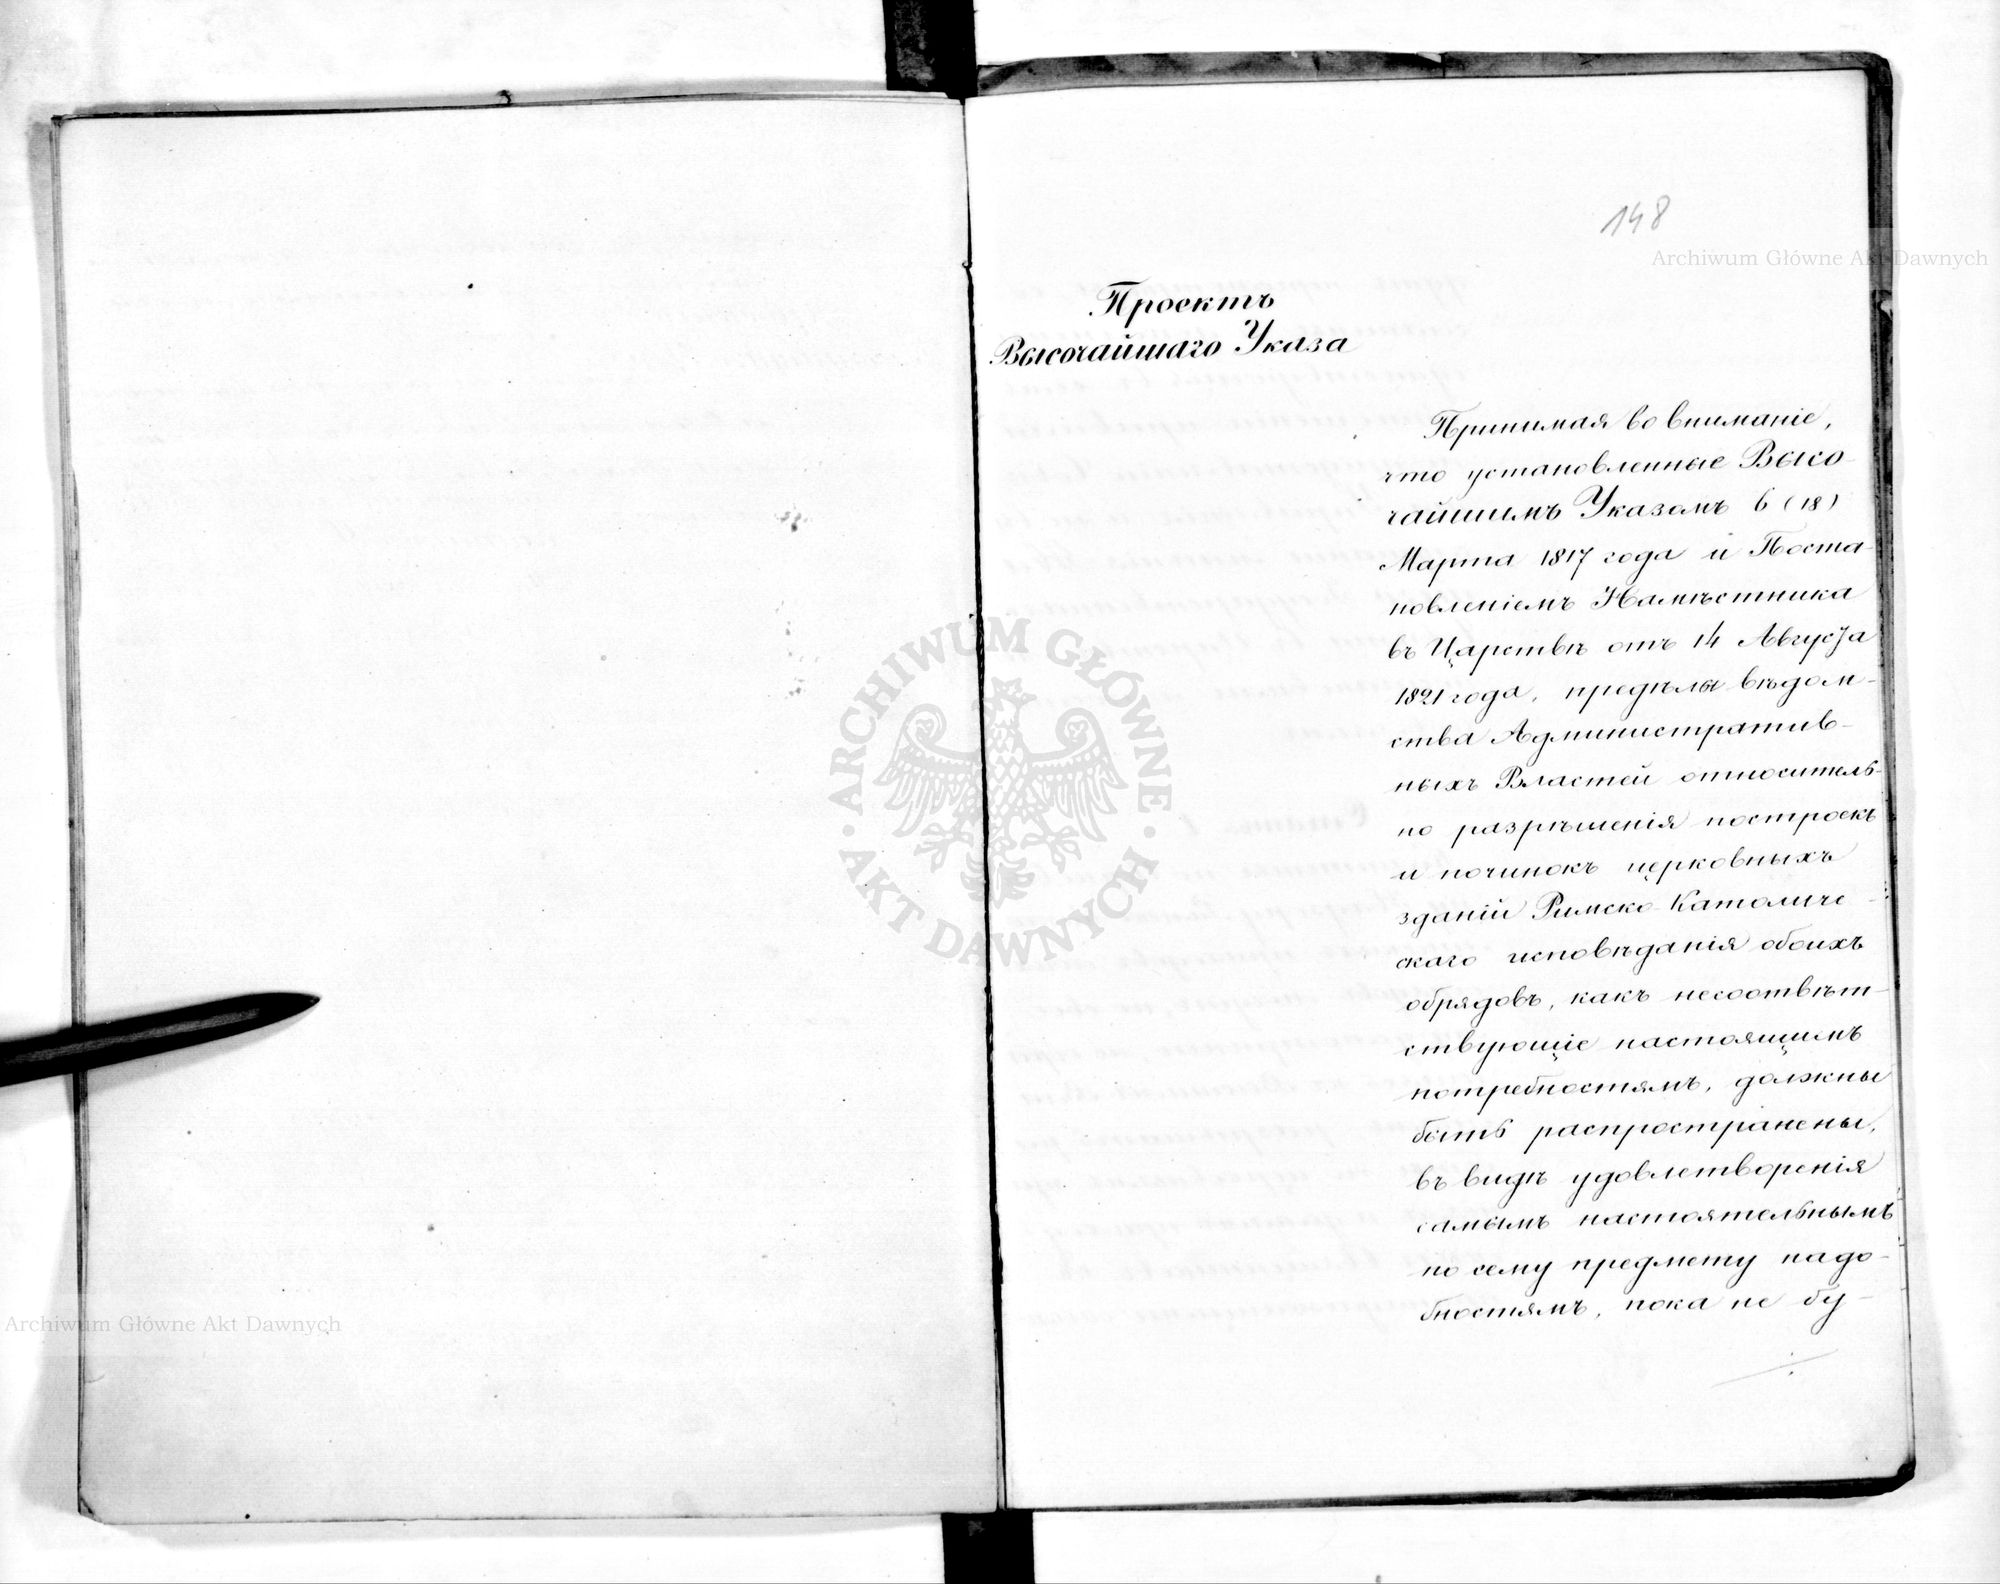 148
Archiwum Główne Akt Dawnych
Проектъ
Высочайшаго Указа
Принимая во вниманіе,
что установленные Высо-
чайшимъ Указомъ 6 (18)
Марта 1817 года и Поста-
новленіемъ Намѣстника
въ Царствѣ отъ 14 Августа
1821 года, предѣлы вѣдом-
ства Административ-
ныхъ Властей относитель-
но разрѣшенія построекъ
и починокъ церковныхъ
зданій Римско-Католиче-
скаго исповѣданія обоихъ
обрядовъ, какъ несоотвѣт-
ствующіе настоящимъ
потребностямъ, должны
быть распространены,
въ видѣ удовлетворенія
самымъ настоятельнымъ
по сему предмету надо-
бностямъ, пока не бу-
ARCHIWUM GŁÓWNE
AKT DAWNYCH
Archiwum Główne Akt Dawnych